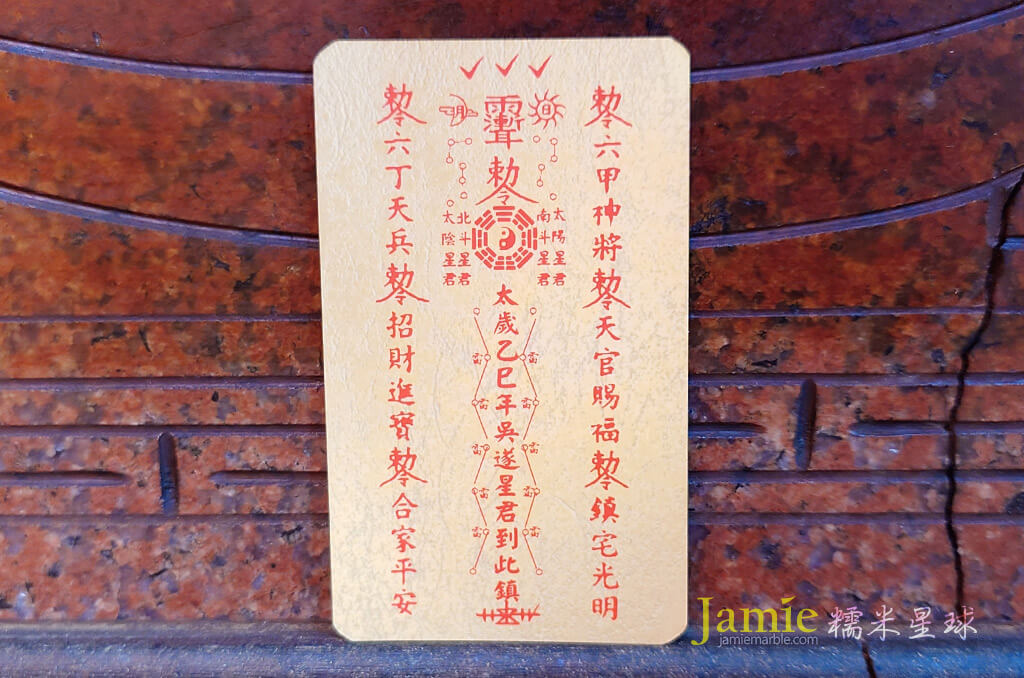 勅令六甲神將勅令天官賜福勅令鎮宅光明
太陽星君
南斗星君
勅令
北斗星君
太陰星君
太歲乙巳年吳遂星君到此鎮
雷
雷
雷
雷
雷
雷
雷
雷
雷
雷
勅令六丁天兵勅令招財進寶勅令合家平安
Jamie 糯米星球
jamiemarble.com